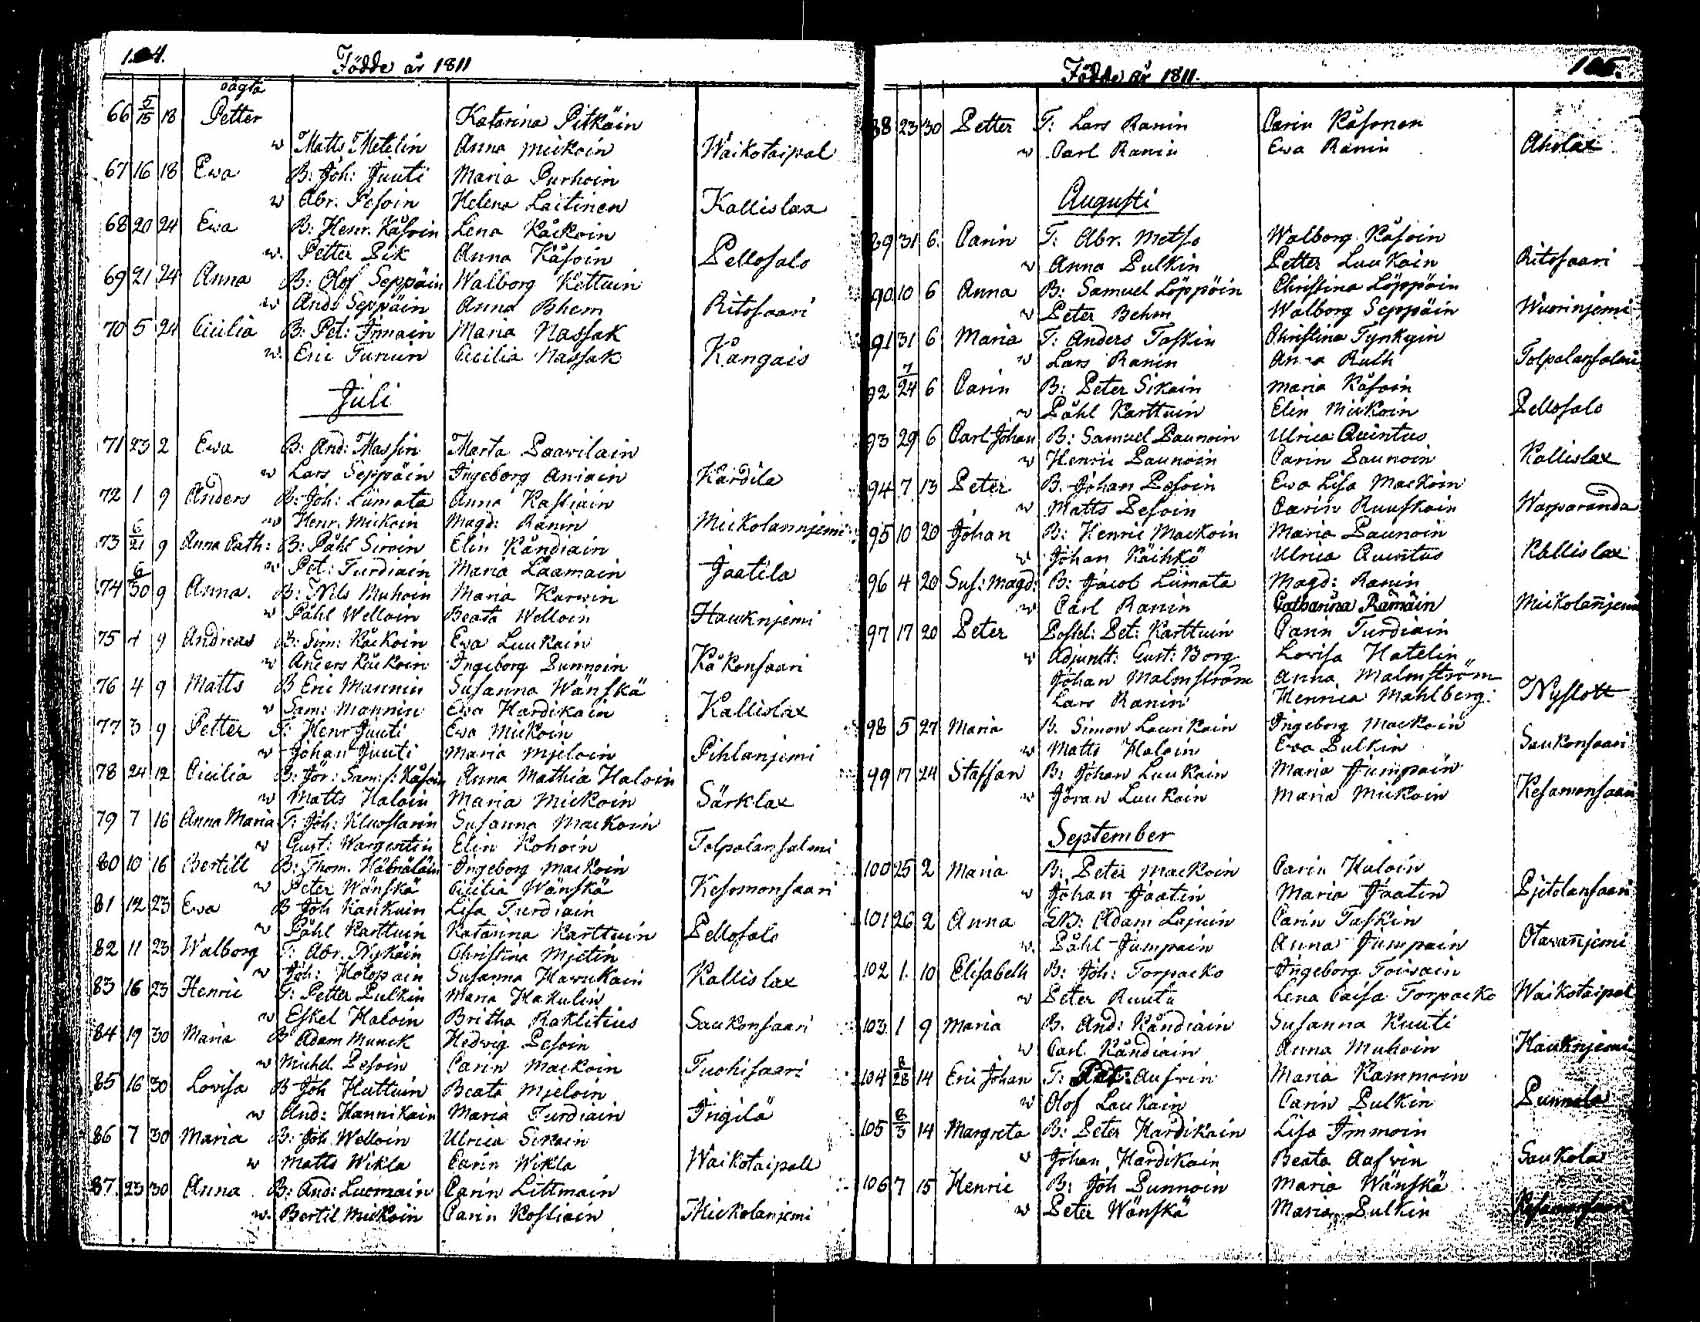 104.
Födde år 1811
oägta
66 5/15 18 Petter Katarina Pitkäin
w Matts Metelin Anna Mickoin Waikotaipal
67 16 18 Ewa B: Joh: Juuti Maria Purhoin
w Abr. Pesoin Helena Laitinen Kallislax
68 20 24 Ewa B: Henr. Kåsoin Lena Kåckoin
w Petter Pik Anna Kåsoin Pellosalo
69 21 24 Anna B: Olof Seppäin Walborg Kettuin
w Ands Seppäin Anna Bhem Ritosaari
70 5 24 Cicilia B: Pet: Immain Maria Nassak
w Eric Tunun Cecilia Nassak Kangais
Juli
71 23 2 Ewa B: And: Massin Marta Paavilain
w Lars Seppäin Ingeborg Aniain Kärdilä
72 1 9 Anders B: Joh: Liimata Anna Kastiain
w Henr. Mickoin Magd: Ranin Mickolannjemi
73 6/21 9 Anna Cath: B: Påhl Sirvin Elin Kåndiain
w Pet: Turdiain Maria Laamain Jaatila
74 6/30 9 Anna. B: Nils Muhoin Maria Karvin
w Påhl Welloin Beata Welloin Hauknjemi
75 4 9 Andreas B: Sim: Kåckoin Ewa Luukain
w Anders Kåckoin Ingeborg Punnoin Kåkonsaari
76 4 9 Matts B Eric Mannin Susanna Wänskä
w Sam: Mannin Ewa Hardikain Kallislax
77 3 9 Petter T: Henr Juuti Ewa Mickoin
w Johan Juuti Maria Mjeloin Pihlanjemi
78 24 12 Cicilia B: Jör: Sam: s: Kåsoin Anna Mathia Haloin
w Matts Haloin Maria Mickoin Särklax
79 7 16 Anna Maria T: Joh: Kluoslarin Susanna Mackoin
w Gust: Wargentin Elin Kohoin Tolpalansalmi
80 10 16 Bertill B: Thom. Ingeborg Mackoin
w Peter Wänskä Cicilia Wänskä Kesomonsaari
81 12 23 Ewa B Joh Kankuin Lisa Turdiain
w Påhl Karttuin Katarina Karttuin Pellosalo
82 11 23 Walborg T: Abr. Nykäin Christina Mjetin
w Joh: Holopain Susanna Havukain Kallislax
83 16 23 Henric T: Petter Pulkin Maria Hakulin
w Eskel Haloin Britha Raklitius Saukonsaari
84 19 30 Maria B Adam Munck Hedvig Pesoin
w Michel Pesoin Carin Mackoin Tuohisaari
85 16 30 Lovisa B Joh Huttuin Beata Mjeloin
w And: Hannikain Maria Turdiain Ingilä
86 7 30 Maria B: Joh Welloin Ulrica Sikain
w Matts Wikla Carin Wikla Waikotaipall
87. 23 30 Anna B: And: Luomain Carin Littmain
w. Bertil Mickoin Carin Kostiain Mickolanjemi
Födde år 1811.
105.
88 23 30 Petter T: Lars Ranin Carin Kåsonen
w Carl Ranin Ewa Ranin Aholax
Augusti
89 31 6. Carin T: Abr. Metso Walborg Kåsoin
w Anna Pulkin Petter Luukain Ritosaari
90 10 6 Anna B: Samuel Löppöin Christina Löppöin
w Peter Behm Walborg Seppäin Wuorinjemi
91 31 6 Maria T: Anders Taskin Christina Tynkyin
w Lars Ranin Anna Ruth Tolpalansalmi
92 7/24 6 Carin B: Peter Sikain Maria Kåsoin
w Påhl Karttuin Elin Mickoin Pellosalo
93 29 6 Carl Johan B: Samuel Paunoin Ulrica Quintus
w Henric Paunoin Carin Paunoin Kallislax
94 7 13 Peter B. Johan Pesoin Ewa Lisa Mackoin
w Matts Pesoin Carin Ruuskain Warparanda
95 10 20 Johan B: Henric Mackoin Maria Paunoin
w Johan Käihkö Ulrica Quintus Kallislax
96 4 20 Sus: Magd: B: Jacob Liimata Magd: Ranin
w Carl Ranin Catharina Rämäin Mickolanjemi
97 17 20 Peter Possel: Pet: Karttuin Carin Turdiain
w Adjunkt: Gust: Borg Lovisa Hatelin
Johan Malmström Anna Malmström
Lars Ranin Henrica Mahlberg: Nyslott
98 5 27 Maria B. Simon Laurikain Ingeborg Mackoin
w Matts Haloin Ewa Pulkin Saukonsaari
99 17 24 Staffan B: Johan Luukain Maria Jumpain
w Jöran Luukain Maria Mickoin Kesamonsaari
September
100 25 2 Maria B: Peter Mackoin Carin Haloin
w Johan Jaatin Maria Jaatin Pjetolansaari
101 26 2 Anna B: Adam Lajuin Carin Taskin
w Påhl Jumpain Anna Jumpain Otavanjemi
102 1. 10 Elisabeth B: Joh: Torpacko Ingeborg Toivain
w Peter Ruuta Lena Caisa Torpacko Waikotaipal
103. 1 9 Maria B. And: Kåndiain Susanna Ruuti
w Carl Kåndiain Anna Muhoin Hauknjemi
104 8/28 14 Eric Johan T: Pet: Ausvin Maria Kammoin
w Olof Laukain Carin Pulkin Punnila
105 8/3 14 Margreta B: Peter Hardikain Lisa Immoin
w Johan Hardikain Beata Aasvin Saukola
106 7 15 Henric B: Joh Punnoin Maria Wänskä
w Peter Wänskä Maria Pulkin Kesamonsaari